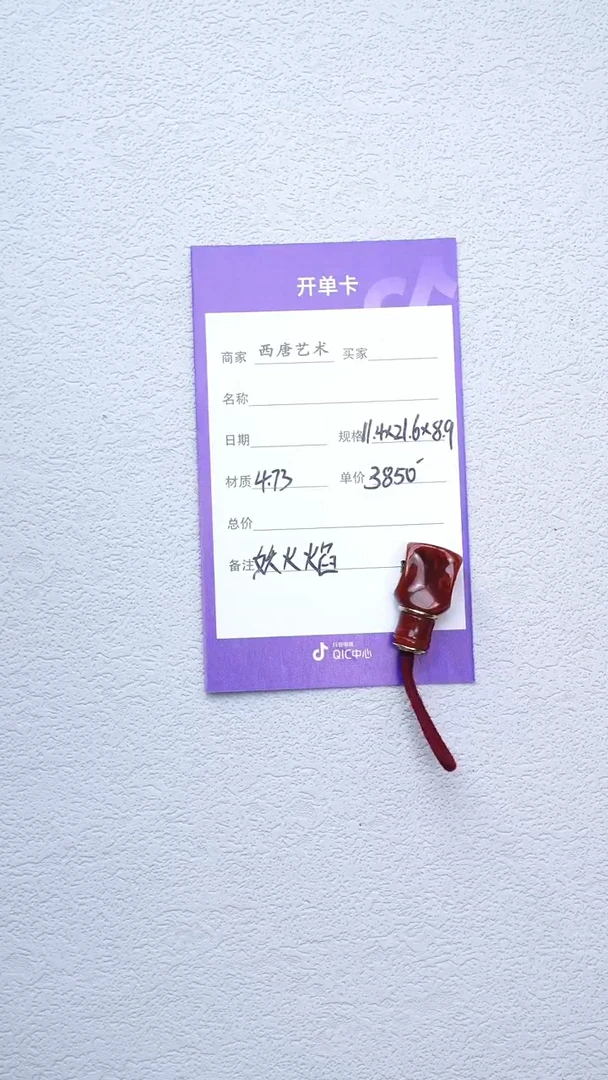 开单卡
商家 西唐艺术 买家
名称
日期 规格 11.4×21.6×8.9
材质 4.73 单价 3850
总价
备注 妖火焰
抖音电商
QIC中心